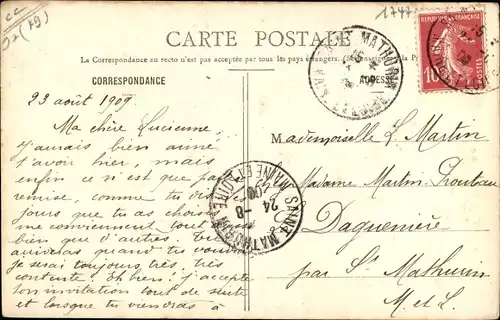 CC
D7 (79)
1747
CARTE POSTALE
La Correspondance au recto n'est pas acceptée par tous les pays étrangers. (Se renseigner à la Poste)
CORRESPONDANCE
ADRESSE
RÉPUBLIQUE FRANÇAISE
10
23 août 1909.
Ma chère Lucienne,
J'aurais bien aimé
t'avoir hier, mais
enfin ce n'est que partie
remise, comme tu dis
jours que tu as choisis
me conviennent tout aussi
bien que d'autres. Tu
arriveras quand tu voudras
je serai toujours très, très
contente. Eh bien! j'accepte
ton invitation tout de suite
et lorsque tu viendras à
Mademoiselle L. Martin
Madame Martin
Daguenière
par St Mathurin
M. et L.
SAINT MATHURIN
MAINE ET LOIRE
24 - 8
09